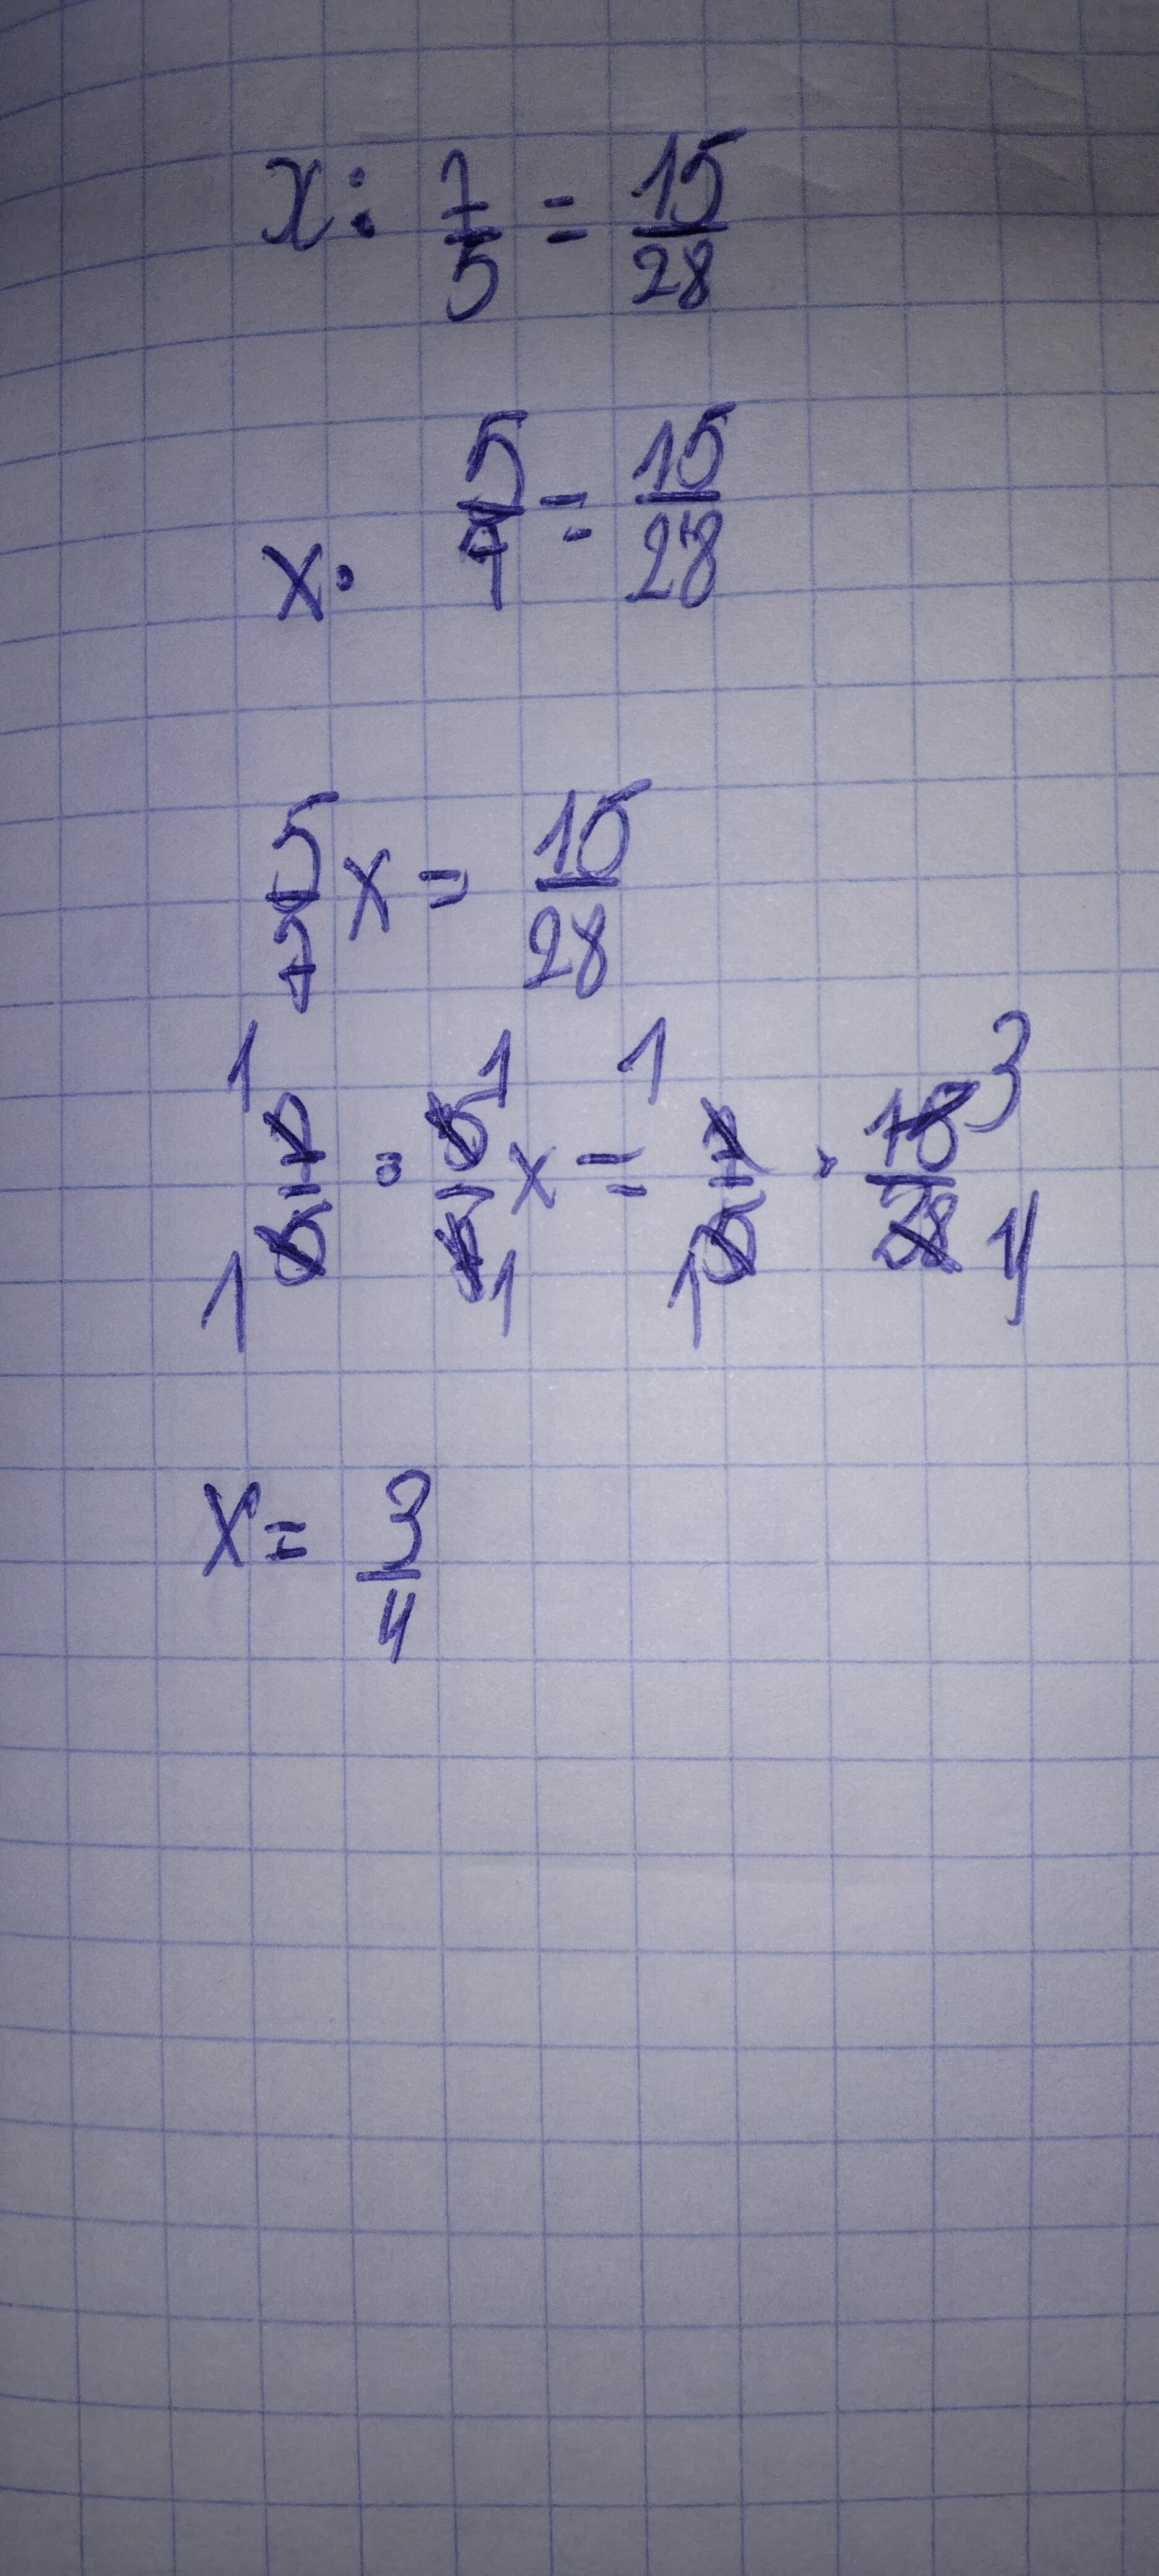 x : 7/5 = 15/28
x · 5/7 = 15/28
5/7 x = 15/28
1 7/5 1 · 1 5/7 1 x = 1 7/5 1 · 15/28 3 4
x = 3/4